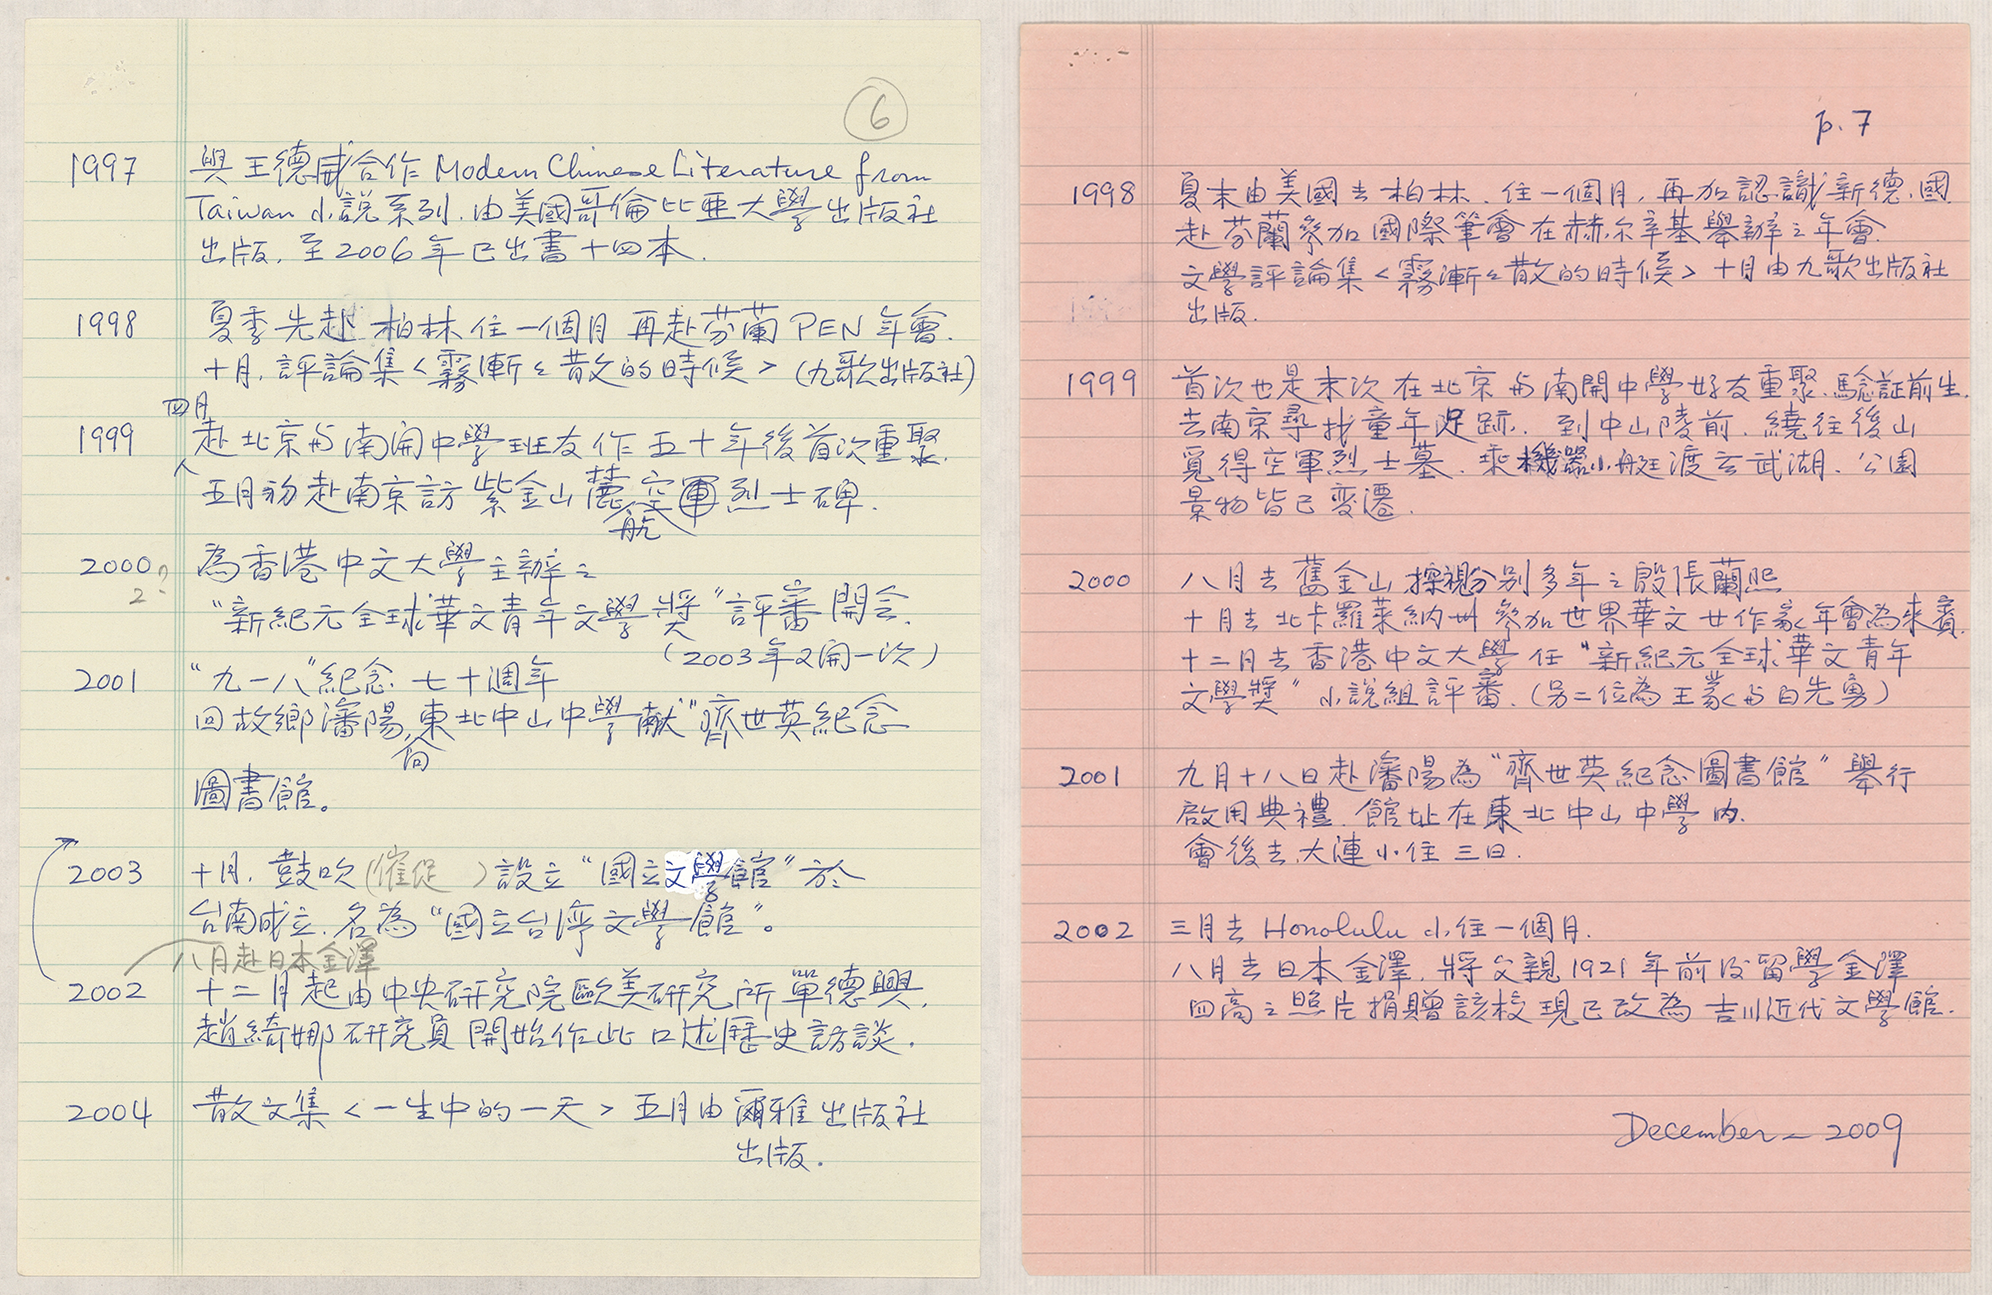 6
1997 與王德威合作 Modern Chinese Literature from
Taiwan 小說系列. 由美國哥倫比亞大學出版社
出版. 至2006年已出書十四本.
1998 夏季先赴柏林住一個月 再赴芬蘭 PEN 年會.
十月. 評論集<霧漸々散的時候> (九歌出版社)
四月
1999 赴北京与南開中學班友作五十年後首次重聚.
五月初赴南京訪紫金山麓空軍烈士碑.
航
2000? 為香港中文大學主辦之
2
"新紀元全球華文青年文學獎"評審開会.
(2003年又開一次)
2001 "九一八"紀念七十週年
回故鄉瀋陽,東北中山中學献"齊世英紀念
向
圖書館。
2003 十月. 鼓吹(催促 )設立"國立文學館"於
台南成立. 名為"國立台灣文學館"。
八月赴日本金澤
2002 十二月起由中央研究院歐美研究所單德興.
趙綺娜研究員開始作此口述歷史訪談.
2004 散文集<一生中的一天> 五月由爾雅出版社
出版.
p.7
1998 夏末由美國去柏林. 住一個月. 再加認識新德.國
赴芬蘭參加國際筆會在赫尔辛基舉辦之年會.
文學評論集<霧漸々散的時候> 十月由九歌出版社
出版.
1999 首次也是末次在北京与南開中學好友重聚. 驗証前生.
去南京尋找童年足跡. 到中山陵前. 繞往後山
覓得空軍烈士墓. 乘機器小艇渡玄武湖. 公園
景物皆已变遷.
2000 八月去舊金山探視分別多年之殷張蘭熙
十月去北卡羅萊納州參加世界華文女作家年會為來賓.
十二月去香港中文大學任"新紀元全球華文青年
文學獎"小說組評審. (另二位為王蒙与白先勇)
2001 九月十八日赴瀋陽為"齊世英紀念圖書館"舉行
啟用典禮. 館址在東北中山中學內.
會後去大連小住三日.
2002 三月去 Honolulu 小住一個月.
八月去日本金澤. 將父親1921年前後留學金澤
四高之照片捐贈該校現已改為吉川近代文學館.
December – 2009